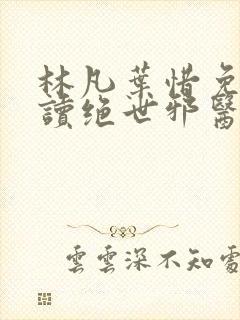 林凡葉惜免
讀绝世邪醫
雲雲深不知處